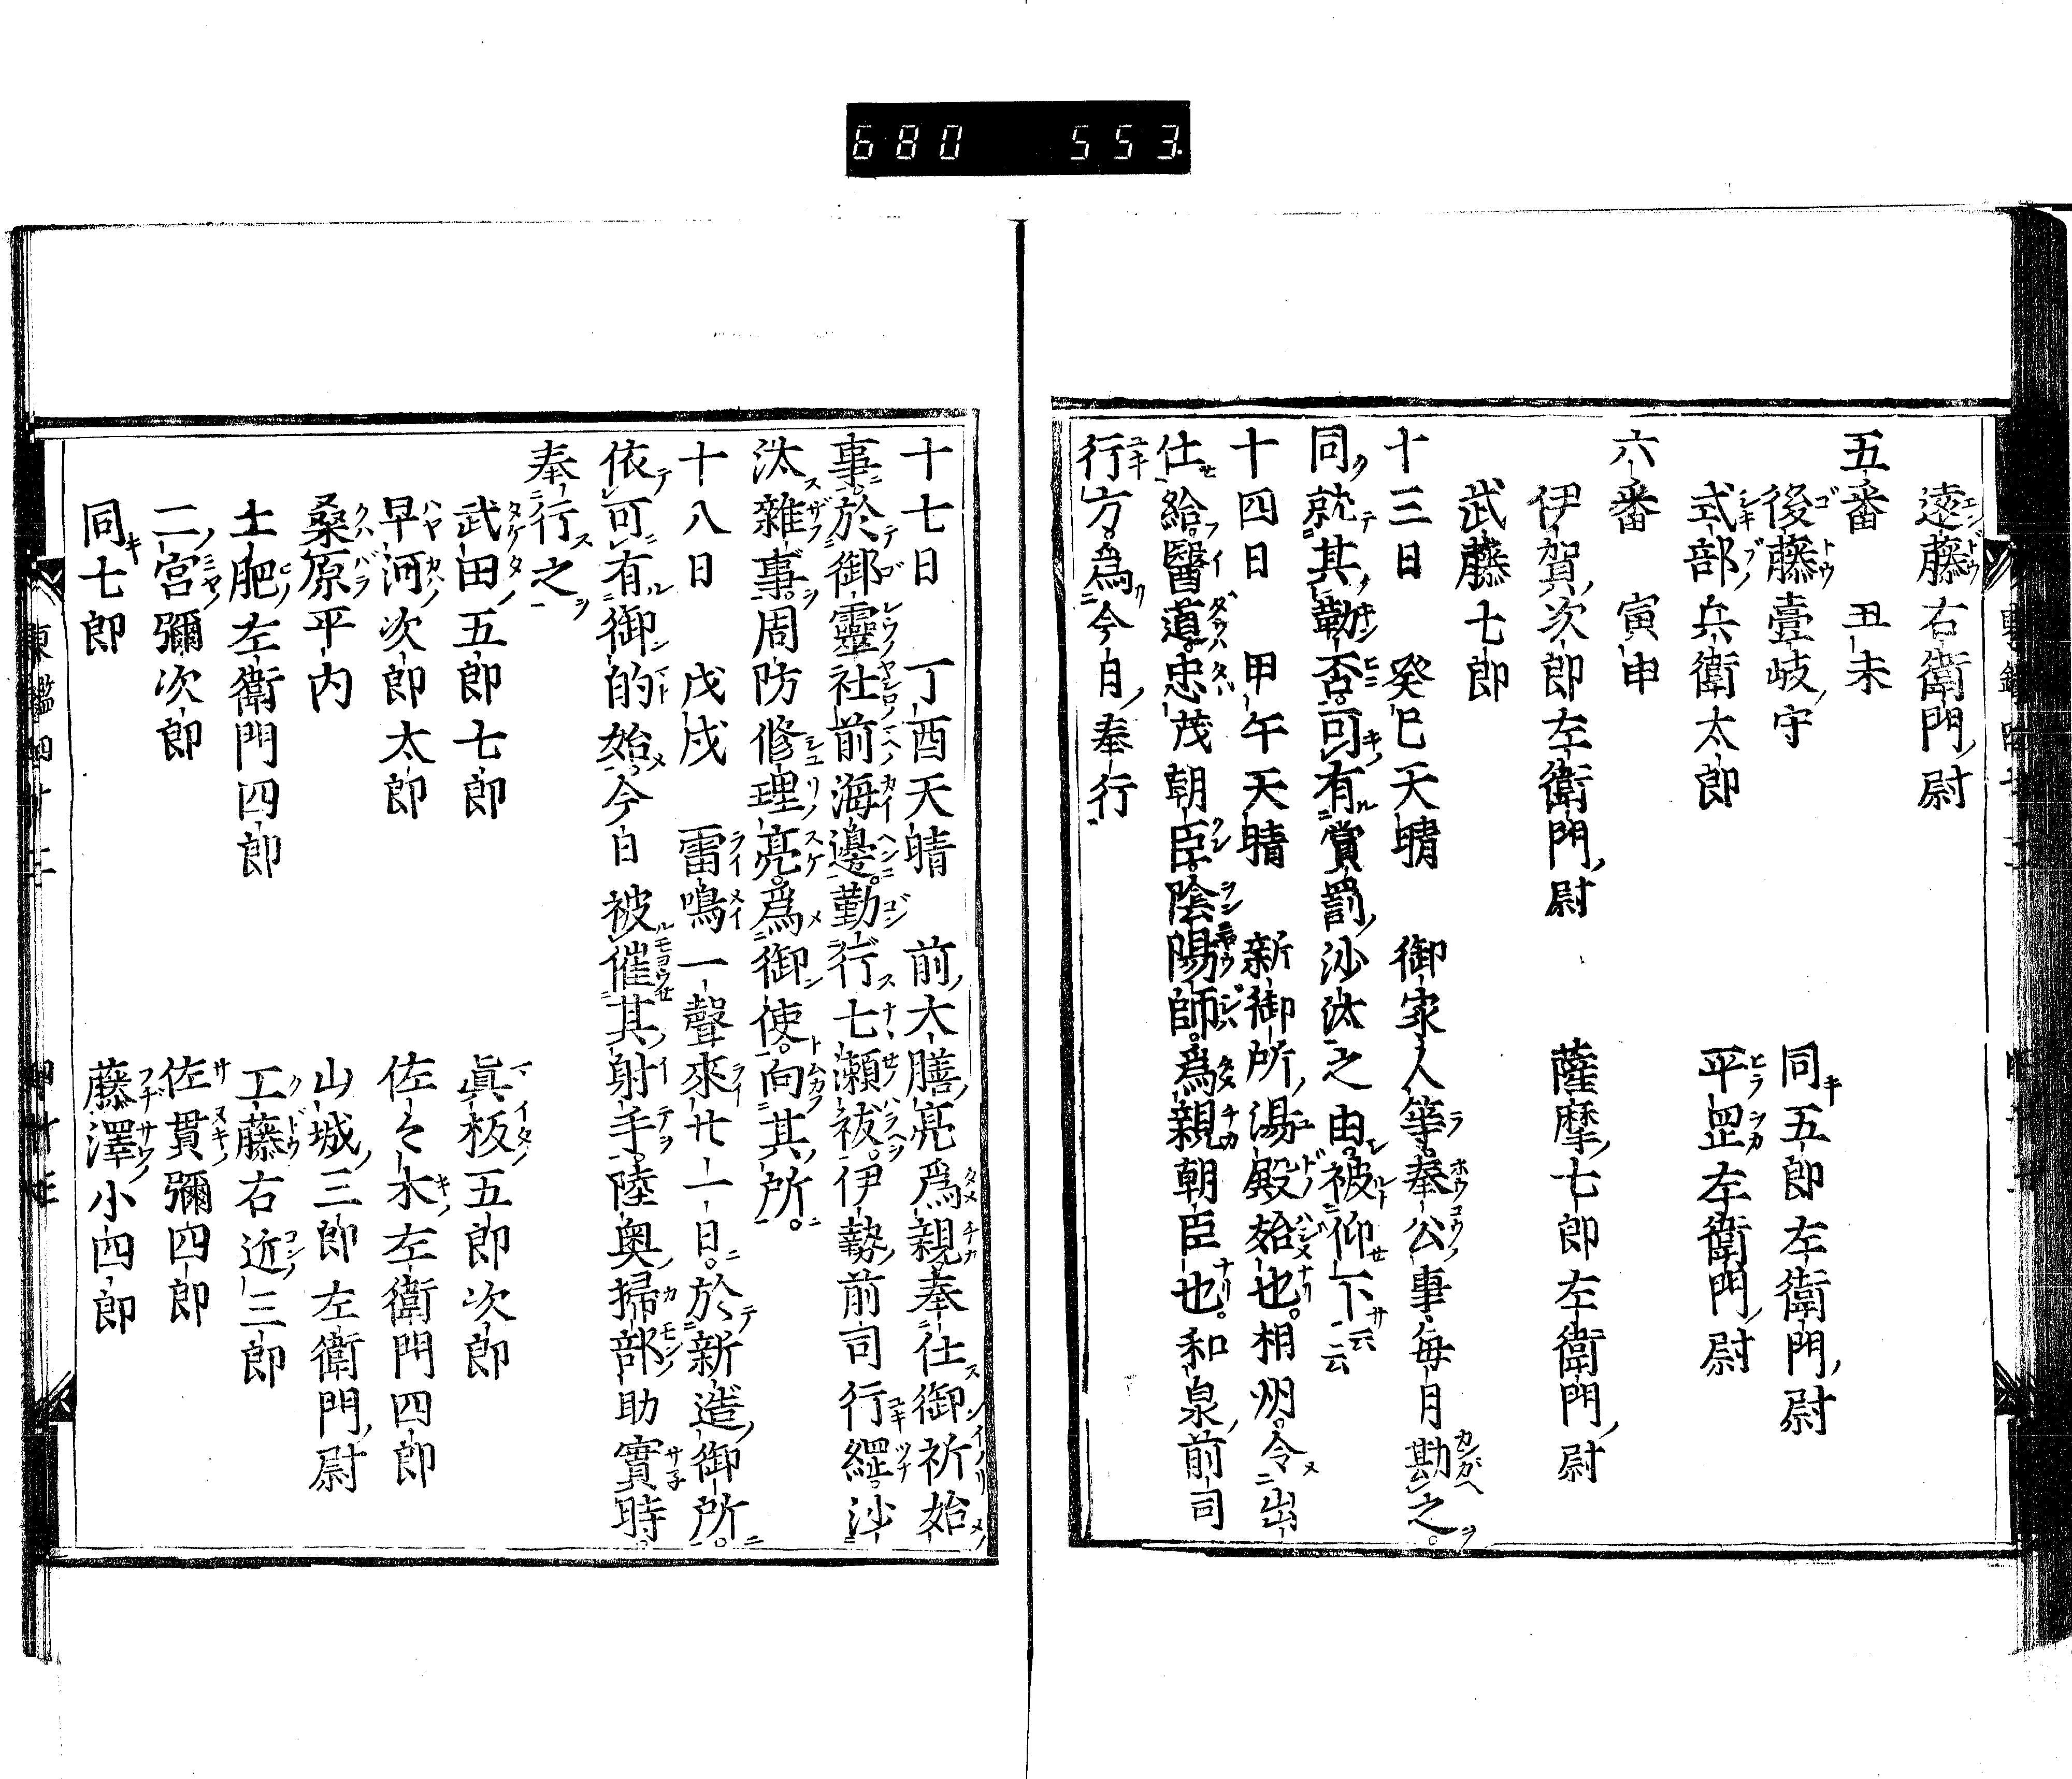 680 553
遠藤右衛門尉
五番 丑未
後藤壹岐守 同五郎左衛門尉
式部兵衛太郎 平岡左衛門尉
六番 寅申
伊賀次郎左衛門尉 薩摩七郎左衛門尉
武藤七郎
十三日 癸巳天晴 御家人等奉公事毎月勘之
同就其勤否可有賞罰沙汰之由被仰下云云
十四日 甲午天晴 新御所湯殿始也相州令出
仕給醫道忠茂朝臣陰陽師爲親朝臣也和泉前司
行方爲今日奉行
十七日 丁酉天晴 前大膳亮爲親奉仕御祈始
事於御靈社前海邊勤行七瀬祓伊勢前司行綱沙
汰雜事周防修理亮爲御使向其所
十八日 戊戌 雷鳴一聲來廿一日於新造御所
依可有御的始今日被催其射手陸奥掃部助實時
奉行之
武田五郎七郎 眞板五郎次郎
早河次郎太郎 佐々木左衛門四郎
桑原平内 山城三郎左衛門尉
土肥左衛門四郎 工藤右近三郎
二宮彌次郎 佐貫彌四郎
同七郎 藤澤小四郎